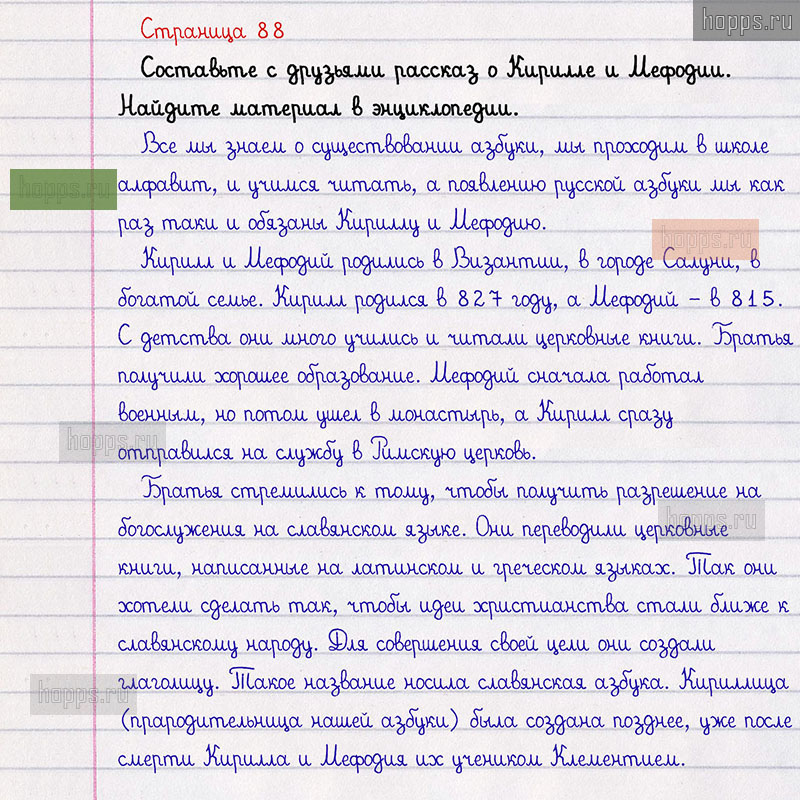 hopps.ru
Страница 88
Составьте с друзьями рассказ о Кирилле и Мефодии.
Найдите материал в энциклопедии.
Все мы знаем о существовании азбуки, мы проходим в школе
hopps.ru
алфавит, и учимся читать, а появлению русской азбуки мы как
раз таки и обязаны Кириллу и Мефодию.
hopps.ru
Кирилл и Мефодий родились в Византии, в городе Салуни, в
богатой семье. Кирилл родился в 827 году, а Мефодий – в 815.
С детства они много учились и читали церковные книги. Братья
получили хорошее образование. Мефодий сначала работал
военным, но потом ушел в монастырь, а Кирилл сразу
hopps.ru
отправился на службу в Римскую церковь.
Братья стремились к тому, чтобы получить разрешение на
hopps.ru
богослужения на славянском языке. Они переводили церковные
книги, написанные на латинском и греческом языках. Так они
хотели сделать так, чтобы идеи христианства стали ближе к
славянскому народу. Для совершения своей цели они создали
глаголицу. Такое название носила славянская азбука. Кириллица
hopps.ru
(прародительница нашей азбуки) была создана позднее, уже после
смерти Кирилла и Мефодия их учеником Клементием.